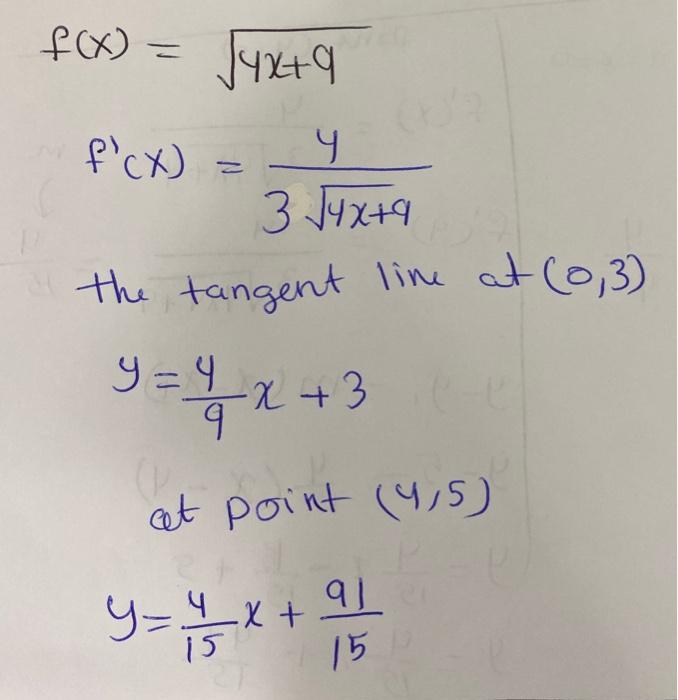 f(x) = √4x+9
f'(x) = 4 / 3 √4x+9
the tangent line at (0,3)
y = 4/9 x + 3
at point (4,5)
y = 4/15 x + 91/15